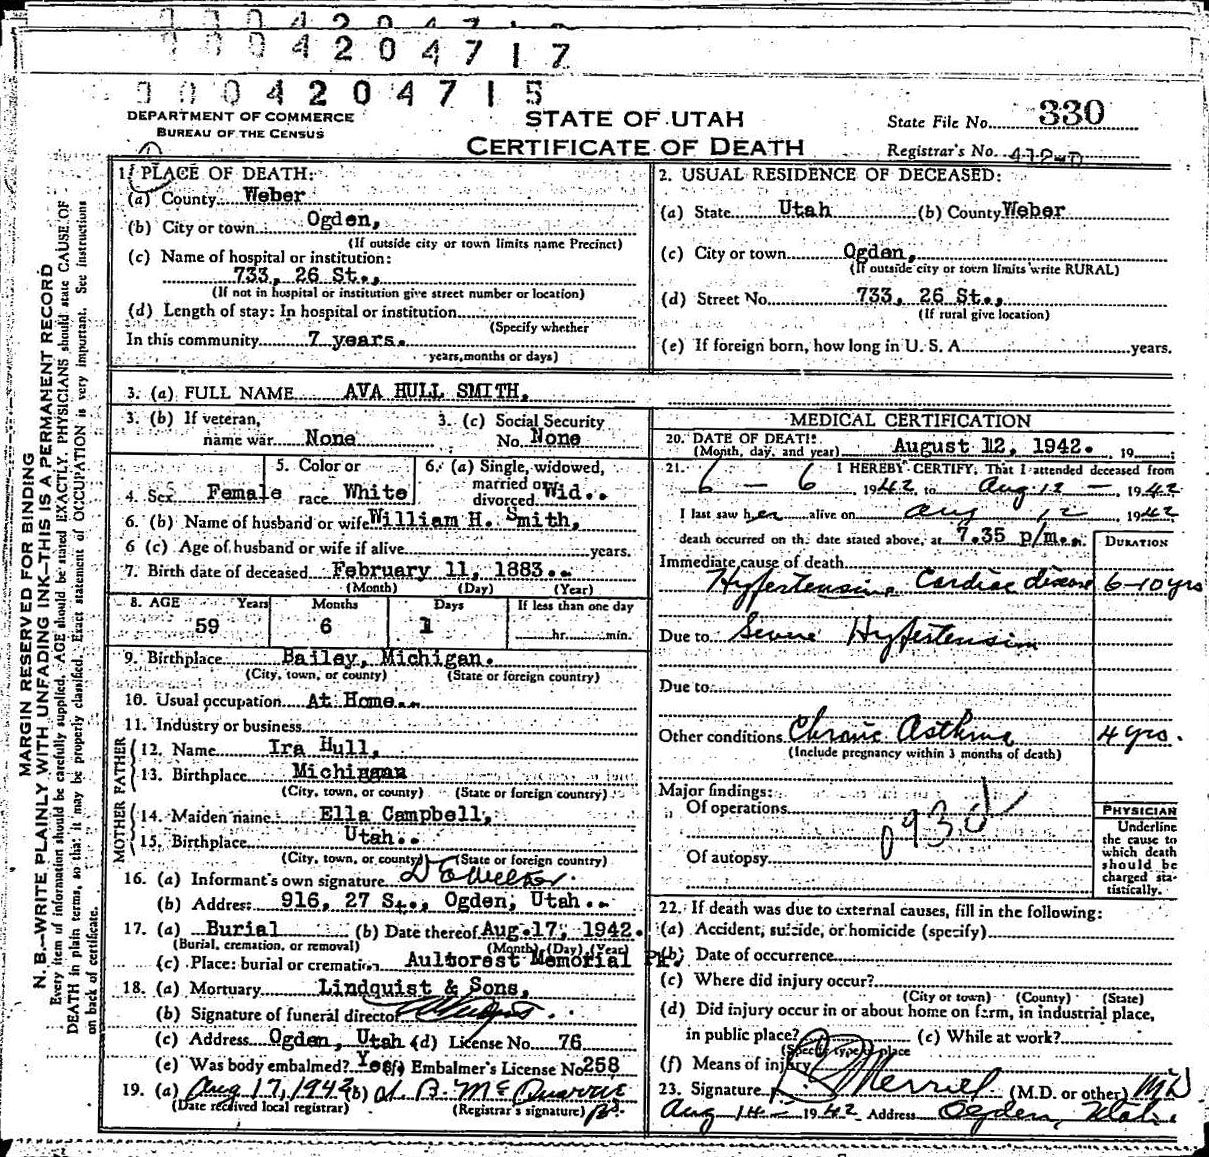 0004204717
0004204715
DEPARTMENT OF COMMERCE
BUREAU OF THE CENSUS
STATE OF UTAH
CERTIFICATE OF DEATH
State File No. 330
Registrar's No.
MARGIN RESERVED FOR BINDING
N. B.—WRITE PLAINLY WITH UNFADING INK—THIS IS A PERMANENT RECORD
Every item of information should be carefully supplied. AGE should be stated EXACTLY. PHYSICIANS should state CAUSE OF
DEATH in plain terms, so that it may be properly classified. Exact statement of OCCUPATION is very important. See instructions
on back of certificate.
1. PLACE OF DEATH:
(a) County Weber
(b) City or town Ogden,
(If outside city or town limits name Precinct)
(c) Name of hospital or institution:
733, 26 St.,
(If not in hospital or institution give street number or location)
(d) Length of stay: In hospital or institution
(Specify whether
In this community 7 years.
years, months or days)
2. USUAL RESIDENCE OF DECEASED:
(a) State Utah (b) County Weber
(c) City or town Ogden,
(If outside city or town limits write RURAL)
(d) Street No. 733, 26 St.,
(If rural give location)
(e) If foreign born, how long in U. S. A. years.
3. (a) FULL NAME AVA HULL SMITH,
3. (b) If veteran,
name war None
3. (c) Social Security
No. None
4. Sex Female
5. Color or
race White
6. (a) Single, widowed,
married or
divorced Wid..
6. (b) Name of husband or wife William H. Smith,
6 (c) Age of husband or wife if alive years.
7. Birth date of deceased February 11, 1883..
(Month) (Day) (Year)
8. AGE Years Months Days If less than one day
59 6 1 hr. min.
9. Birthplace Bailey, Michigan.
(City, town, or county) (State or foreign country)
10. Usual occupation At Home..
11. Industry or business
FATHER
12. Name Ira Hull,
13. Birthplace Michigan
(City, town, or county) (State or foreign country)
MOTHER
14. Maiden name Ella Campbell,
15. Birthplace Utah..
(City, town, or county) (State or foreign country)
16. (a) Informant's own signature
(b) Address 916, 27 St., Ogden, Utah..
17. (a) Burial (b) Date thereof Aug. 17, 1942.
(Burial, cremation, or removal) (Month) (Day) (Year)
(c) Place: burial or cremation Aultorest Memorial Pk.
18. (a) Mortuary Lindquist & Sons,
(b) Signature of funeral director
(c) Address Ogden, Utah (d) License No. 76
(e) Was body embalmed? Yes (f) Embalmer's License No 258
19. (a) Aug 17, 1942 (b)
(Date received local registrar) (Registrar's signature)
MEDICAL CERTIFICATION
20. DATE OF DEATH: August 12, 1942. , 19
(Month, day, and year)
21. I HEREBY CERTIFY, That I attended deceased from
6 - 6 1942 to Aug 12 - , 1942
I last saw her alive on Aug 12 1942
death occurred on the date stated above, at 7.35 p/m..
DURATION
Immediate cause of death
Hypertensive Cardiac disease 6-10 yrs
Due to Severe Hypertension
Due to
Other conditions Chronic Asthma 4 yrs.
(Include pregnancy within 3 months of death)
Major findings:
Of operations
093d
Of autopsy
PHYSICIAN
Underline
the cause to
which death
should be
charged sta-
tistically.
22. If death was due to external causes, fill in the following:
(a) Accident, suicide, or homicide (specify)
(b) Date of occurrence
(c) Where did injury occur?
(City or town) (County) (State)
(d) Did injury occur in or about home on farm, in industrial place,
in public place? (e) While at work?
(Specify type of place
(f) Means of injury
23. Signature Merrill (M.D. or other) MD
Aug 14 - 1942 Address Ogden, Utah